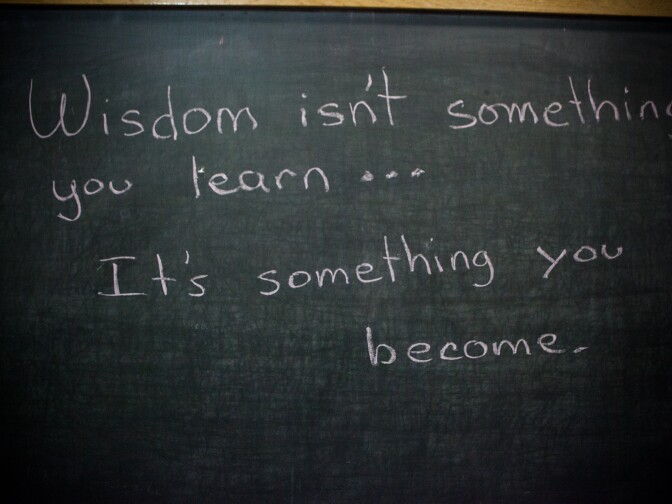 Wisdom isn't somethin
you learn ...
It's something you
become.